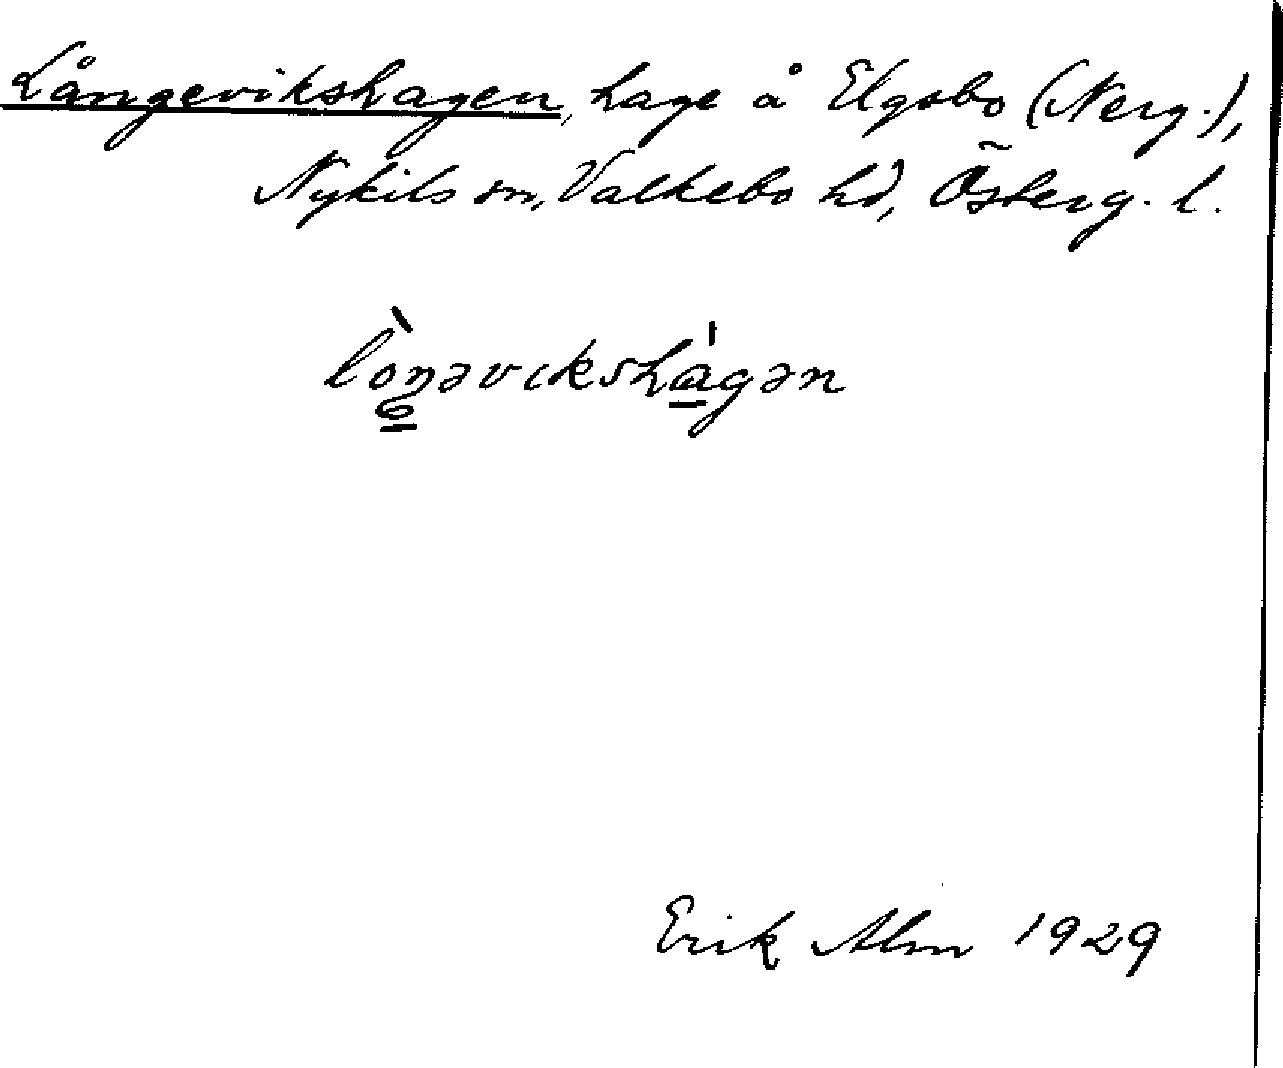 Långevikshagen, hage å Elgsbo (Nerg.),
Nykils sn, Valkebo hd, Österg. l.
lòŋəvɩkshágən
Erik Alm 1929